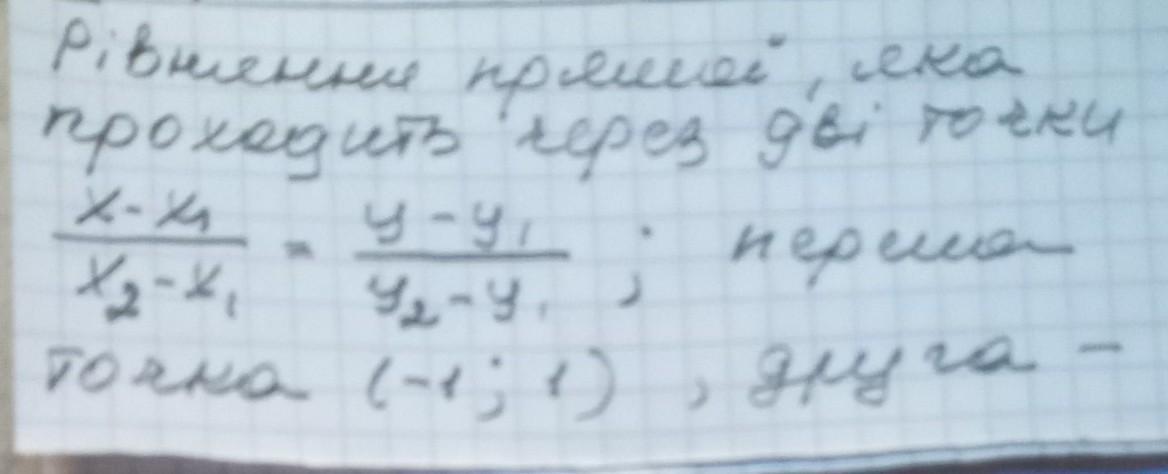 Рівняння прямої, яка
проходить через дві точки
x-x₁/x₂-x₁ = y-y₁/y₂-y₁ ; перша
точка (-1; 1), друга -